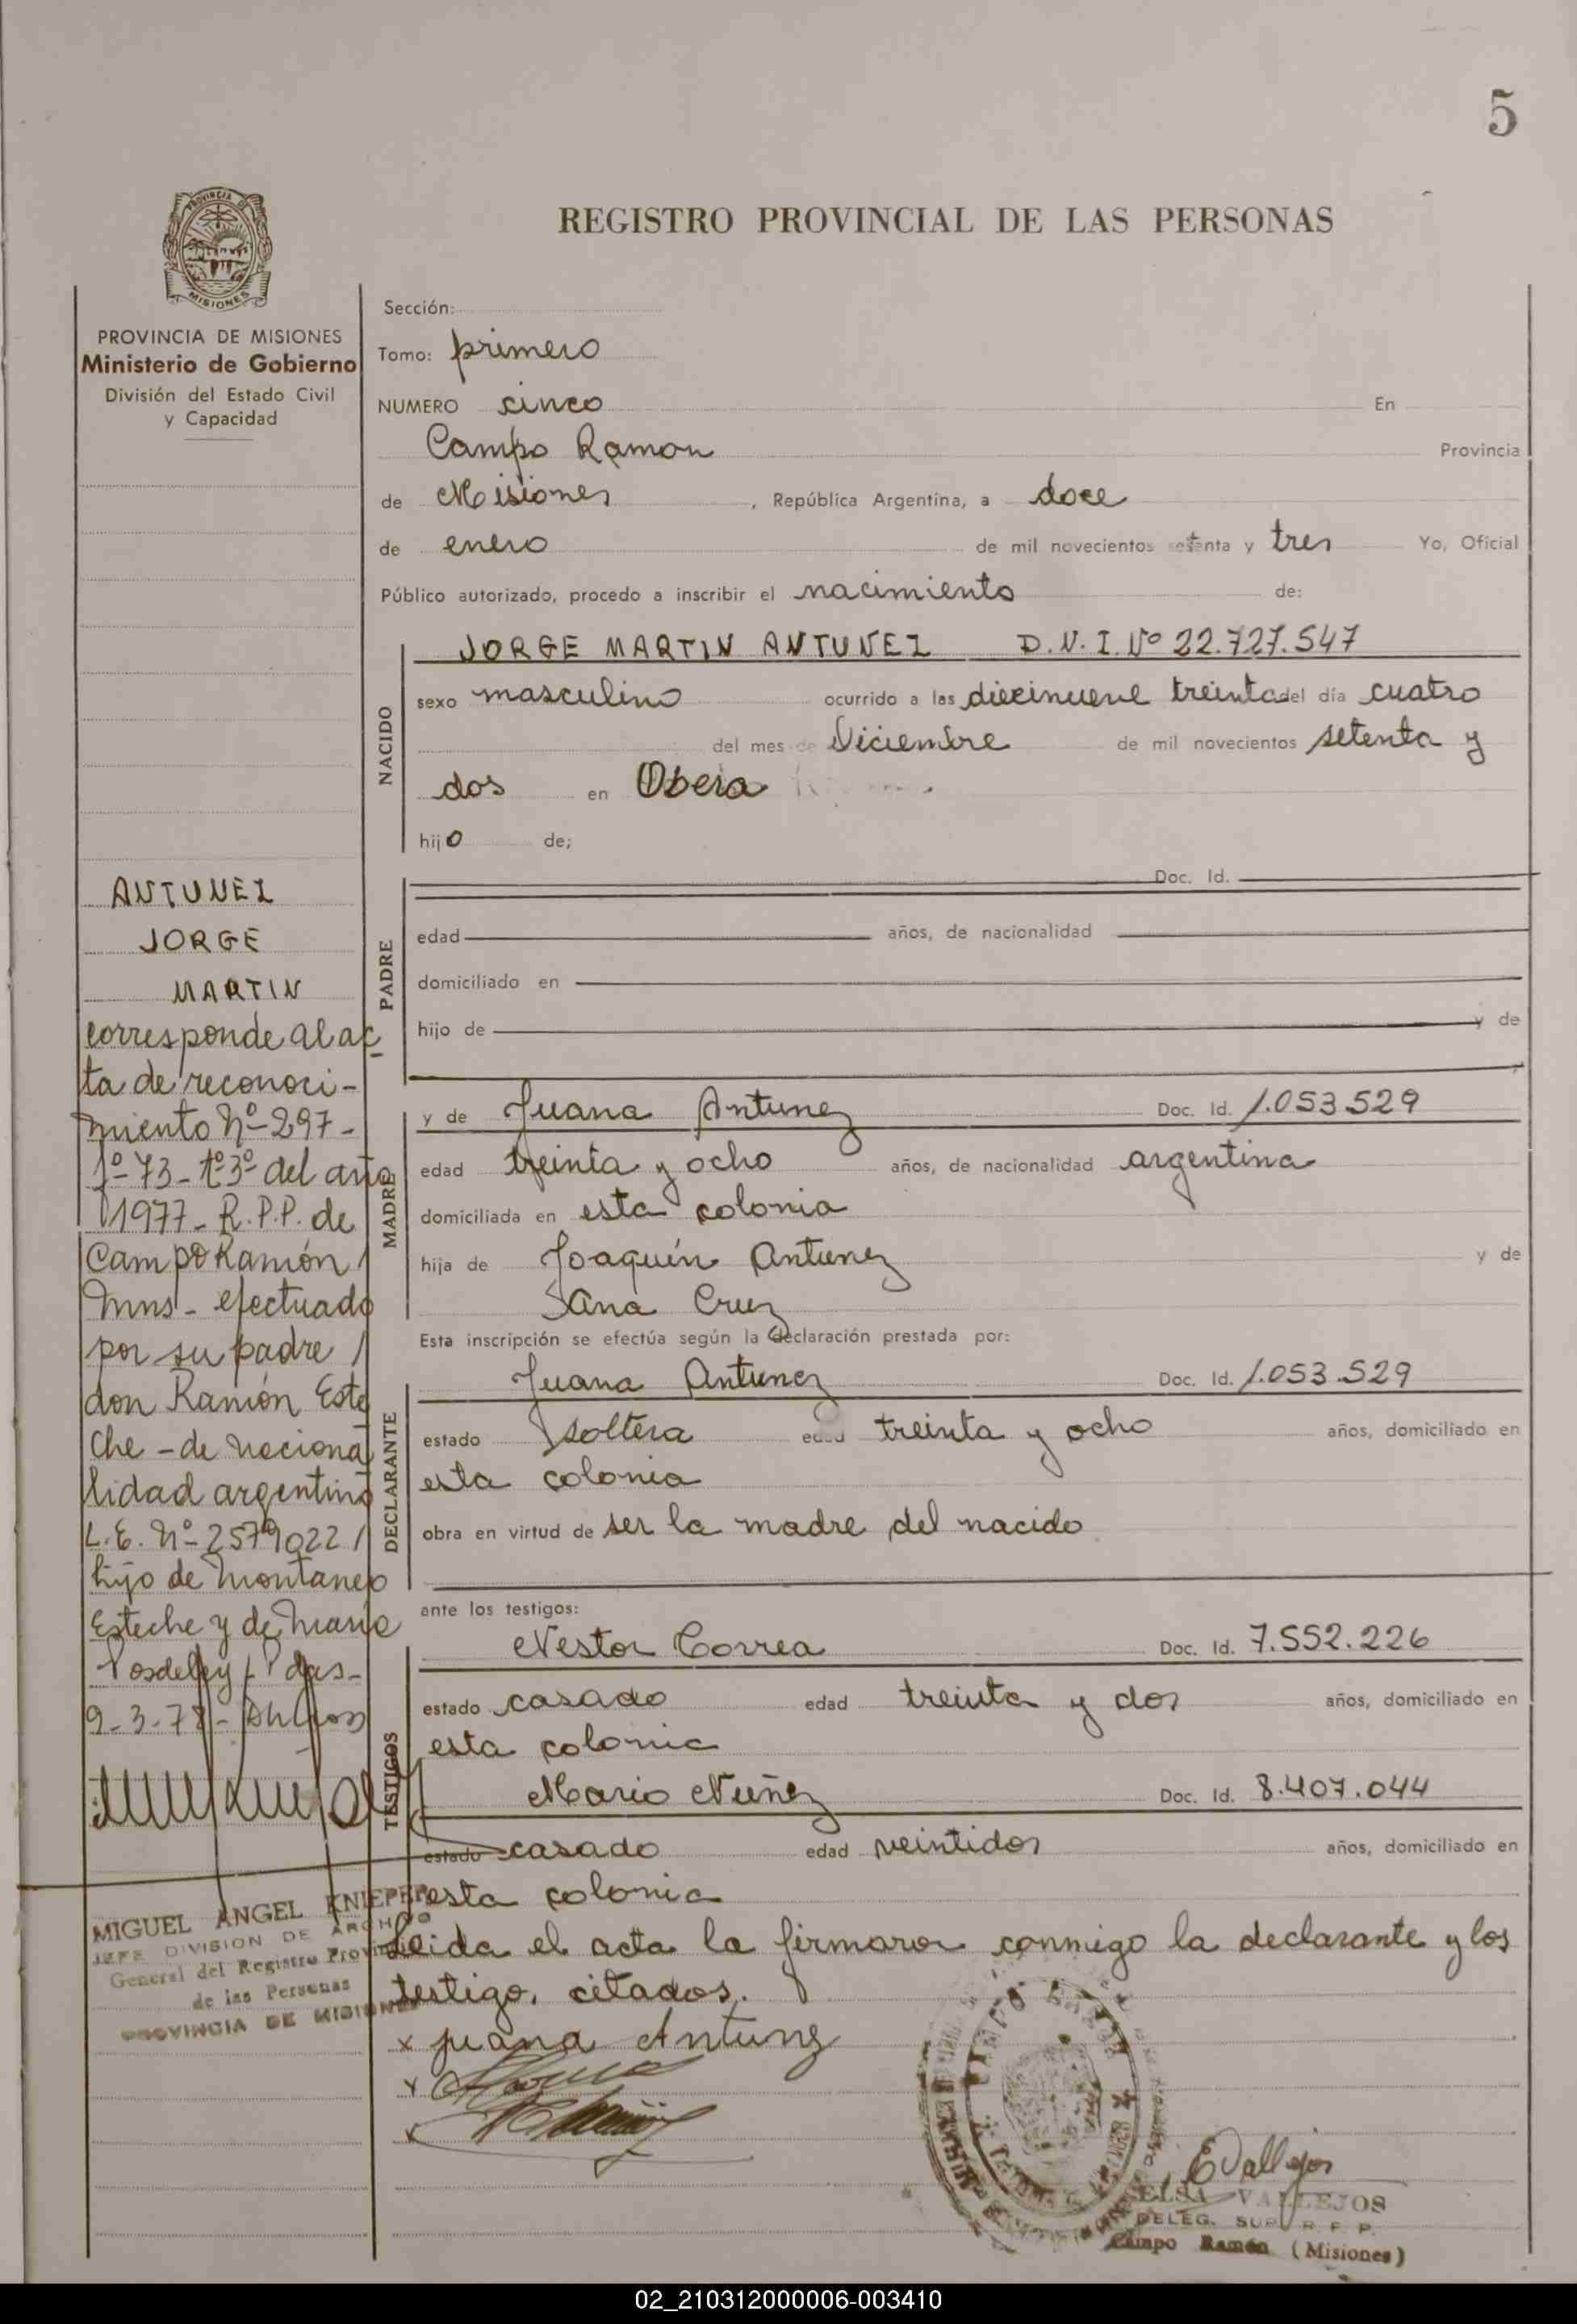 5
REGISTRO PROVINCIAL DE LAS PERSONAS
PROVINCIA DE MISIONES
MISIONES
PROVINCIA DE MISIONES
Ministerio de Gobierno
División del Estado Civil
y Capacidad
Sección:
Tomo: primero
NUMERO cinco En
Campo Ramon Provincia
de Misiones, República Argentina, a doce
de enero de mil novecientos setenta y tres Yo, Oficial
Público autorizado, procedo a inscribir el nacimiento de:
NACIDO
JORGE MARTIN ANTUNEZ D.N.I. Nº 22.727.547
sexo masculino ocurrido a las diecinueve treinta del día cuatro
del mes de Diciembre de mil novecientos setenta y
dos en Obera
hijo de;
PADRE
Doc. Id.
edad años, de nacionalidad
domiciliado en
hijo de y de
MADRE
y de Juana Antunez Doc. Id. 1.053.529
edad treinta y ocho años, de nacionalidad argentina
domiciliada en esta colonia
hija de Joaquín Antunez y de
Ana Cruz
Esta inscripción se efectúa según la declaración prestada por:
DECLARANTE
Juana Antunez Doc. Id. 1.053.529
estado soltera edad treinta y ocho años, domiciliado en
esta colonia
obra en virtud de ser la madre del nacido
ante los testigos:
TESTIGOS
Nestor Correa Doc. Id. 7.552.226
estado casado edad treinta y dos años, domiciliado en
esta colonia
Mario Nuñez Doc. Id. 8.407.044
estado casado edad veintidos años, domiciliado en
esta colonia
Leida el acta la firmaron conmigo la declarante y los
testigo, citados.
x juana Antunez
ANTUNEZ
JORGE
MARTIN
corresponde al ac
ta de reconoci-
miento Nº 297-
Fº 73-tº3º del año
1977- R.P.P. de
Campo Ramón /
Mns- efectuado
por su padre /
don Ramón Este
che - de naciona
lidad argentino
L.E. Nº 2579022 /
hijo de Montanero
Esteche y de Maria
9-3-78-
MIGUEL ANGEL KNIEPER
JEFE DIVISION DE ARCHIVO
General del Registro Provincial
de las Personas
PROVINCIA DE MISIONES
EVallejos
ELSA VALLEJOS
DELEG. SUP. R. P. P.
Campo Ramón (Misiones)
02_210312000006-003410